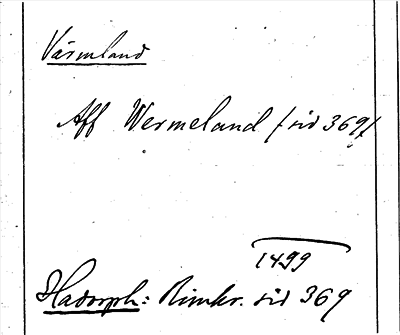 Värmland
Aff Wermeland /sid 369/
1499
Hadorph: Rimkr. sid 369